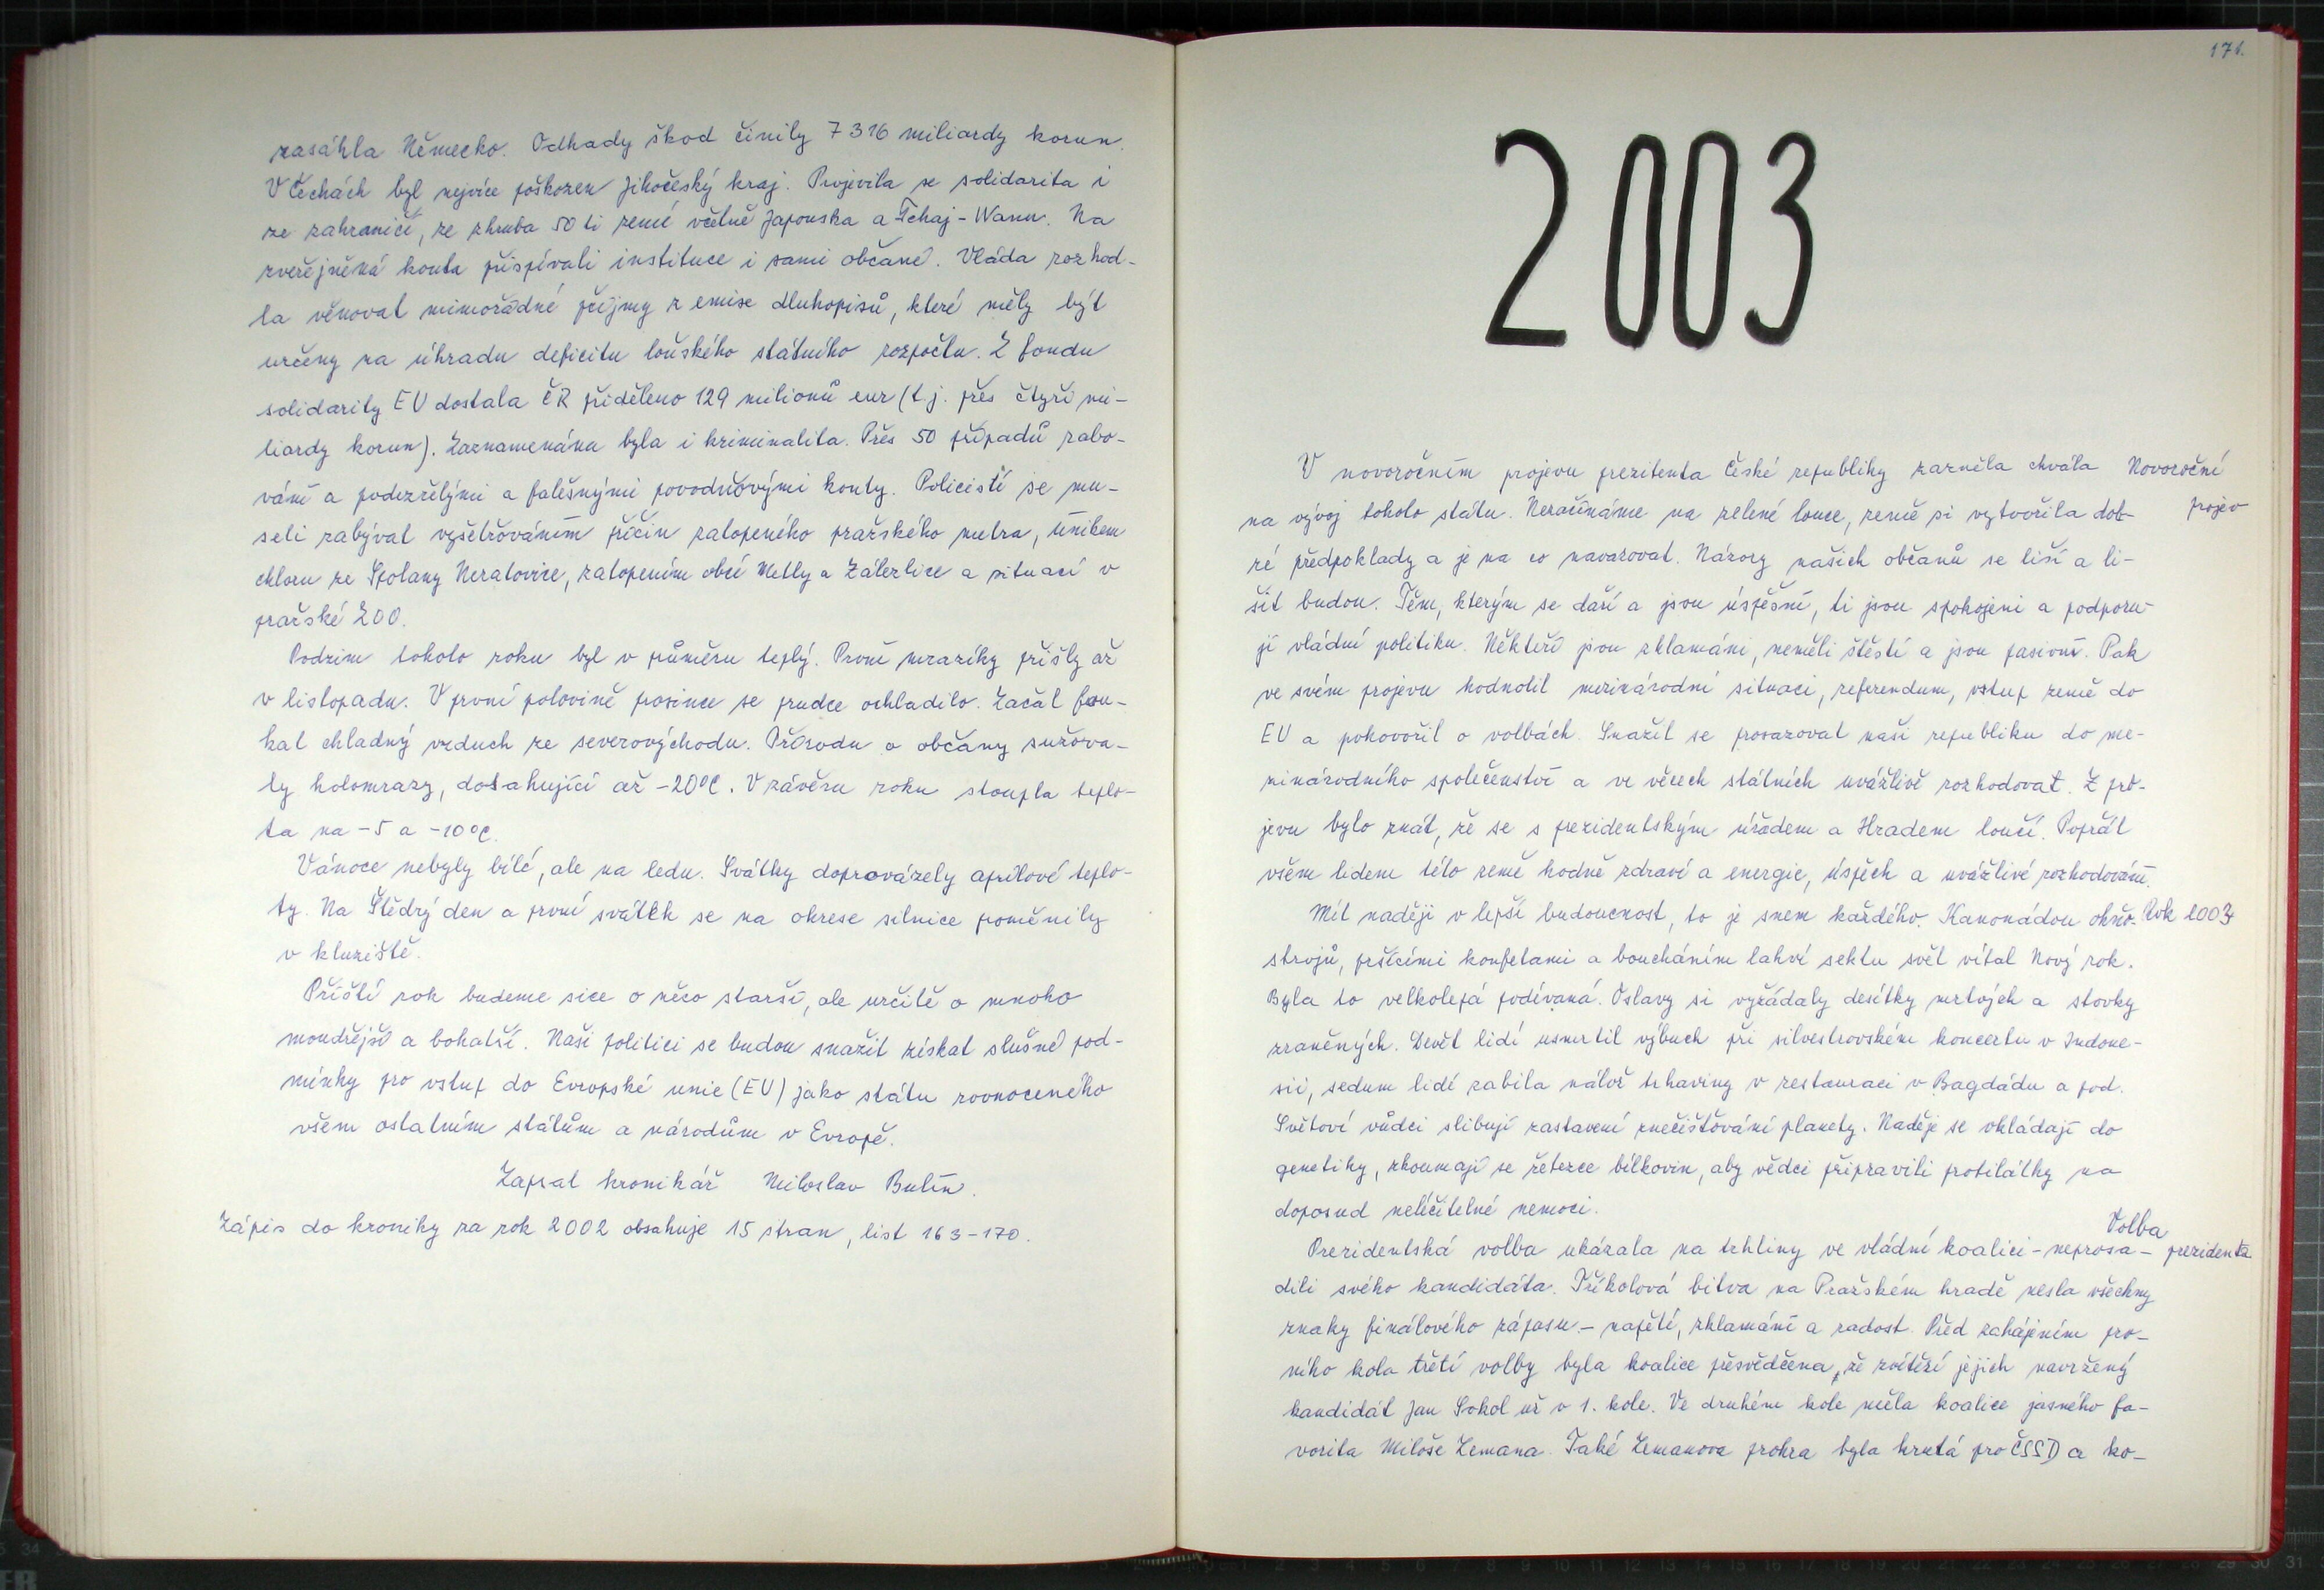 zasáhla Německo. Odhady škod činily 7 316 miliardy korun.
V Čechách byl nejvíce poškozen Jihočeský kraj. Projevila se solidarita i
ze zahraničí, ze zhruba 50 ti zemí včetně Japonska a Tchaj-Wanu. Na
zveřejněná konta přispívali instituce i sami občané. Vláda rozhod-
la věnovat mimořádné příjmy z emise dluhopisů, které měly být
určeny na úhradu deficitu loňského státního rozpočtu. Z fondu
solidarity EU dostala ČR přiděleno 129 milionů eur (t.j. přes čtyři mi-
liardy korun). Zaznamenána byla i kriminalita. Přes 50 případů rabo-
vání a podezřelými a falešnými povodňovými konty. Policisti se mu-
seli zabývat vyšetřováním příčin zatopeného pražského metra, únikem
chloru ze Spolany Neratovice, zatopením obcí Metly a Zálezlice a situací v
pražské ZOO.
Podzim tohoto roku byl v průměru teplý. První mrazíky přišly až
v listopadu. V první polovině prosince se prudce ochladilo. Začal fou-
kat chladný vzduch ze severovýchodu. Přírodu a občany sužova-
ly holomrazy, dosahující až -20°C. V závěru roku stoupla teplo-
ta na -5 a -10°C.
Vánoce nebyly bílé, ale na ledu. Svátky doprovázely aprílové teplo-
ty. Na Štědrý den a první svátek se na okrese silnice poměnily
v kluziště.
Příští rok budeme sice o něco starší, ale určitě o mnoho
moudřejší a bohatší. Naši politici se budou snažit získat slušné pod-
mínky pro vstup do Evropské unie (EU) jako státu rovnoceného
všem ostatním státům a národům v Evropě.
Zapsal kronikář Miloslav Bulín.
Zápis do kroniky za rok 2002 obsahuje 15 stran, list 163-170.
171.
2003
V novoročním projevu prezitenta České republiky zazněla chvála
Novoroční
na vývoj tohoto státu. Nezačínáme na zelené louce, země si vytvořila dob-
projev
ré předpoklady a je na co navazovat. Názory našich občanů se liší a li-
šit budou. Těm, kterým se daří a jsou úspěšní, ti jsou spokojeni a podporu-
jí vládní politiku. Někteří jsou zklamáni, neměli štěstí a jsou pasivní. Pak
ve svém projevu hodnotil mezinárodní situaci, referendum, vstup země do
EU a pohovořil o volbách. Snažil se prosazovat naši republiku do me-
zinárodního společenství a ve věcech státních uvážlivě rozhodovat. Z pro-
jevu bylo znát, že se s prezidentským úřadem a Hradem loučí. Popřál
všem lidem této země hodně zdraví a energie, úspěch a uvážlivé rozhodování.
Mít naději v lepší budoucnost, to je snem každého. Kanonádou ohňo-
Rok 2003
strojů, pršícími konfetami a boucháním lahví sektu svět vítal Nový rok.
Byla to velkolepá podívaná. Oslavy si vyžádaly desítky mrtvých a stovky
zraněných. Devět lidí usmrtil výbuch při silvestrovském koncertu v Indone-
sii, sedum lidí zabila nálož trhaviny v restauraci v Bagdádu a pod.
Světoví vůdci slibují zastavení znečišťování planety. Naděje se vkládají do
genetiky, zkoumají se řetezce bílkovin, aby vědci připravili protilátky na
doposud neléčitelné nemoci.
Prezidentská volba ukázala na trhliny ve vládní koalici - neprosa-
Volba
prezidenta
dili svého kandidáta. Tříkolová bitva na Pražském hradě nesla všechny
znaky finálového zápasu - napětí, zklamání a radost. Před zahájením prv-
ního kola třetí volby byla koalice přesvědčena, že zvítězí jejich navržený
kandidát Jan Sokol už v 1. kole. Ve druhém kole měla koalice jasného fa-
vorita Miloše Zemana. Také Zemanova prohra byla krutá pro ČSSD a ko-